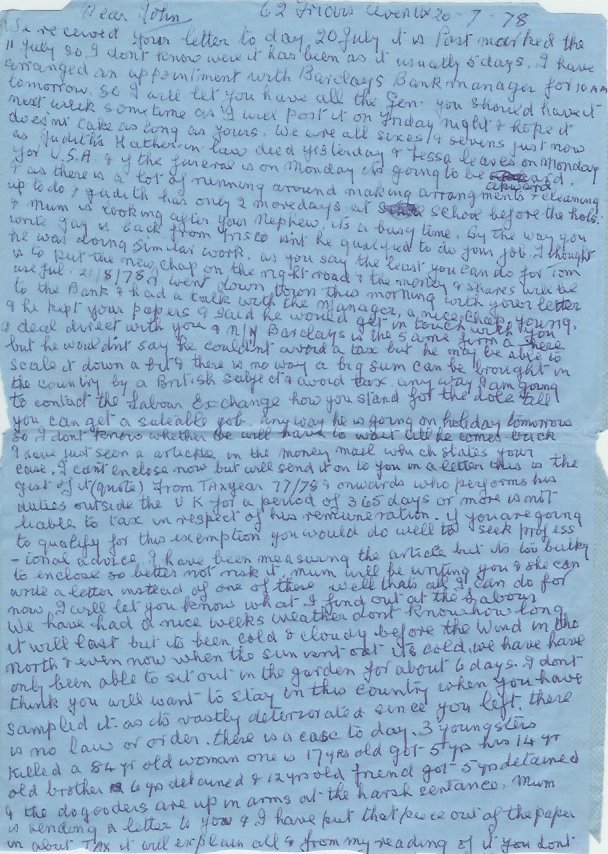 Dear John 62 Friars Avenue 20-7-78
We received your letter to day 20 July it is Post marked the
11 July so I dont know were it has been as it usually 5 days. I have
arranged an appointment with Barclays Bank manager for 10 AM
tomorrow. so I will let you have all the Gen. you should have it
next week sometime as I will post it on Friday night & hope it
doesnt take as long as yours. We are all sixes & sevens just now
as Judiths Father in law died yesterday & Tessa leaves on Monday
for U.S.A. & if the funeral is on Monday its going to be awkward.
& as there is a lot of running around making arrangments & cleaning
up to do, & Judith has only 2 more days at school before the hols.
& Mum is looking after your Nephew, its a busy time. By the way you
wrote Jay is back from Frisco isnt he qualified to do your job. I thought
he was doing similar work. as you say the least you can do for Tom
is to put the new chap on the right road & the monty & shares will be
useful. 21/8/78 I went down town this morning with your letter
to the Bank & had a talk with the Manager, a nice chap, young,
& he kept your papers & said he would get in touch with you
& deal direct with you & N/Y Barclays is the same firm a there
but he wouldnt say he couldnt avoid a tax but he may be able to
scale it down a bit & there is no way a big sum can be brought in
the country by a British subject & avoid tax any way I am going
to contact the Labour Exchange how you stand for the dole till
you can get a suteable job. anyway he is going on holiday tomorrow
so I dont know whether we will have to wait till he comes back
I have just seen a article in the money mail which states your
case. I cant enclose now but will send it on to you in a letter this is the
gist of it (quote) From TAX year 77/78 & onwards who performs his
duties outside the U K for a period of 365 days or more is not
liable to tax in respect of his remuneration. If you are going
to qualify for this exemption you would do well to seek profess
-ional advice. I have been measuring the article but its too bulky
to enclose so better not risk it, mum will be writing you & she can
write a letter instead of one of these. well thats all I can do for
now, I will let you know what I find out at the Labour
We have had a nice weeks weather dont know how long
it will last but its been cold & cloudy before the wind in the
North & even now when the sun went out its cold. we have have
only been able to sit out in the garden for about 6 days. I dont
think you will want to stay in this country when you have
sampled it. as its vastly deteriorated since you left, there
is no law or order. there is a case to day. 3 youngsters
killed a 84 yr old woman one is 17 yrs old got 5 yrs his 14 yr
old brother 6 yrs detained & 12 yrs old friend got 5 yrs detained
& the dogooders are up in arms at the harsh sentance. Mum
is sending a letter to you & I have put that piece out of the paper
in about TAX it will explain all & from my reading of it you dont